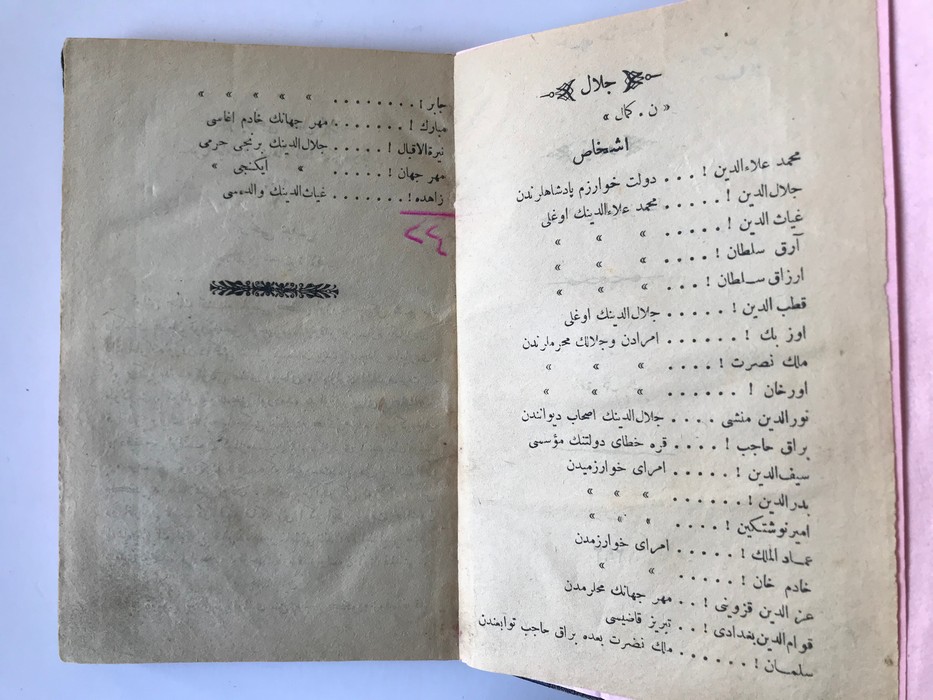 جلال
« ن . كمال »
اشخاص
محمد علاءالدين ! . . . دولت خوارزم پادشاهلرندن
جلال‌الدين ! . . . . . محمد علاءالدينك اوغلى
غياث الدين ! . . . . . » » »
آرق سلطان ! . . . . » » »
ارزاق سلطان ! . . . » » »
قطب الدين ! . . . . . جلال‌الدينك اوغلى
اوز بك ! . . . . . . امرادن وجلالك محرملرندن
ملك نصرت ! . . . . » » »
اورخان ! . . . . . . » » »
نورالدين منشى . . . . جلال‌الدينك اصحاب ديوانندن
براق حاجب ! . . . . قره خطاى دولتنك مؤسسى
سيف‌الدين ! . . . . . امراى خوارزميدن
بدرالدين ! . . . . . . » » »
اميرنوشتكين ! . . . . » » »
عماد الملك ! . . . . . امراى خوارزمدن
خادم خان ! . . . . . » »
عز الدين قزوينى ! . . مهر جهانك محلرمدن
قوام‌الدين بغدادى ! . . تبريز قاضيسى
سلمان ! . . . . . . ملك نضرت بعده براق حاجب توابعندن
جابر ! . . . . . . . . » » » » »
مبارك ! . . . . . . . مهر جهانك خادم اغاسى
نيرةالاقبال ! . . . . . جلال‌الدينك برنجى حرمى
مهر جهان ! . . . . . » ايكنجى »
زاهده ! . . . . . . . غياث‌الدينك والده‌سى